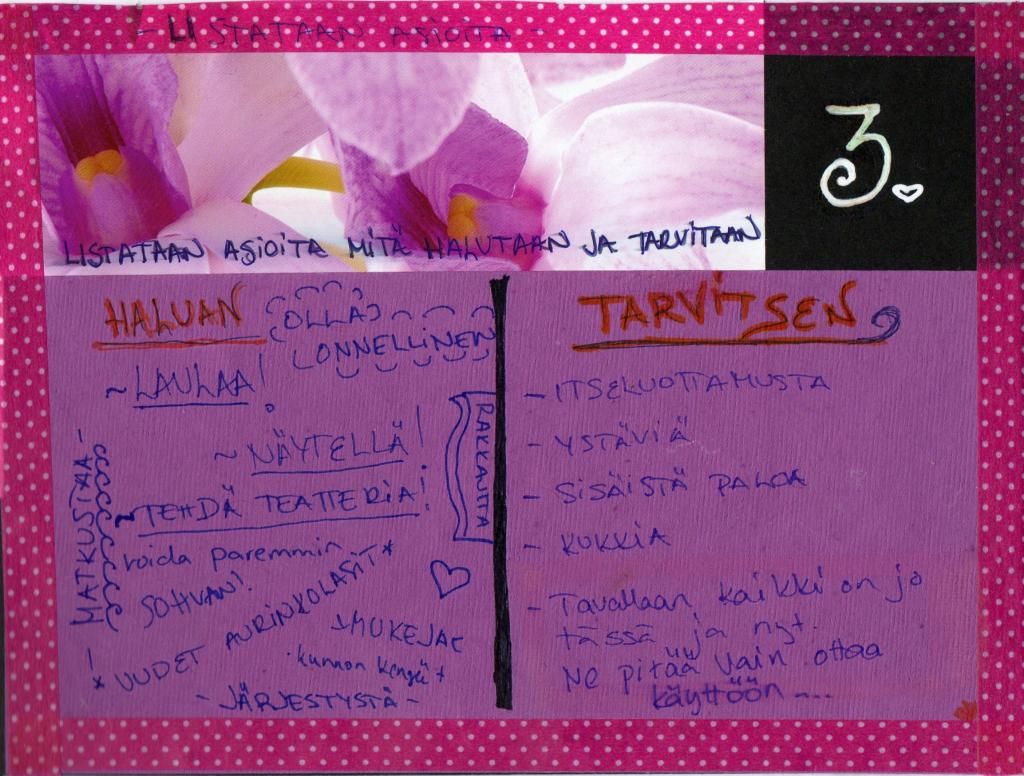 - LISTATAAN ASIOITA -
3.
LISTATAAN ASIOITA MITÄ HALUTAAN JA TARVITAAN
HALUAN
OLLA
ONNELLINEN
~ LAULAA!
~ NÄYTELLÄ!
~ TEHDÄ TEATTERIA!
RAKKAUTTA
MATKUSTAA -
voida paremmin
SOHVAN!
* UUDET AURINKOLASIT *
kunnon kengät
- JÄRJESTYSTÄ -
TARVITSEN
- ITSELUOTTAMUSTA
- YSTÄVIÄ
- SISÄISTÄ PALOA
- KUKKIA
- Tavallaan kaikki on jo
tässä ja nyt.
Ne pitää vain ottaa
käyttöön ....